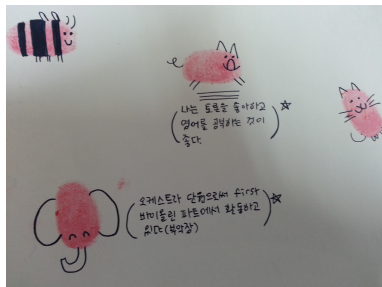 나는 토론을 좋아하고
영어를 공부하는 것이
좋다.
오케스트라 단원으로써 first
바이올린 파트에서 활동하고
있다(부악장)